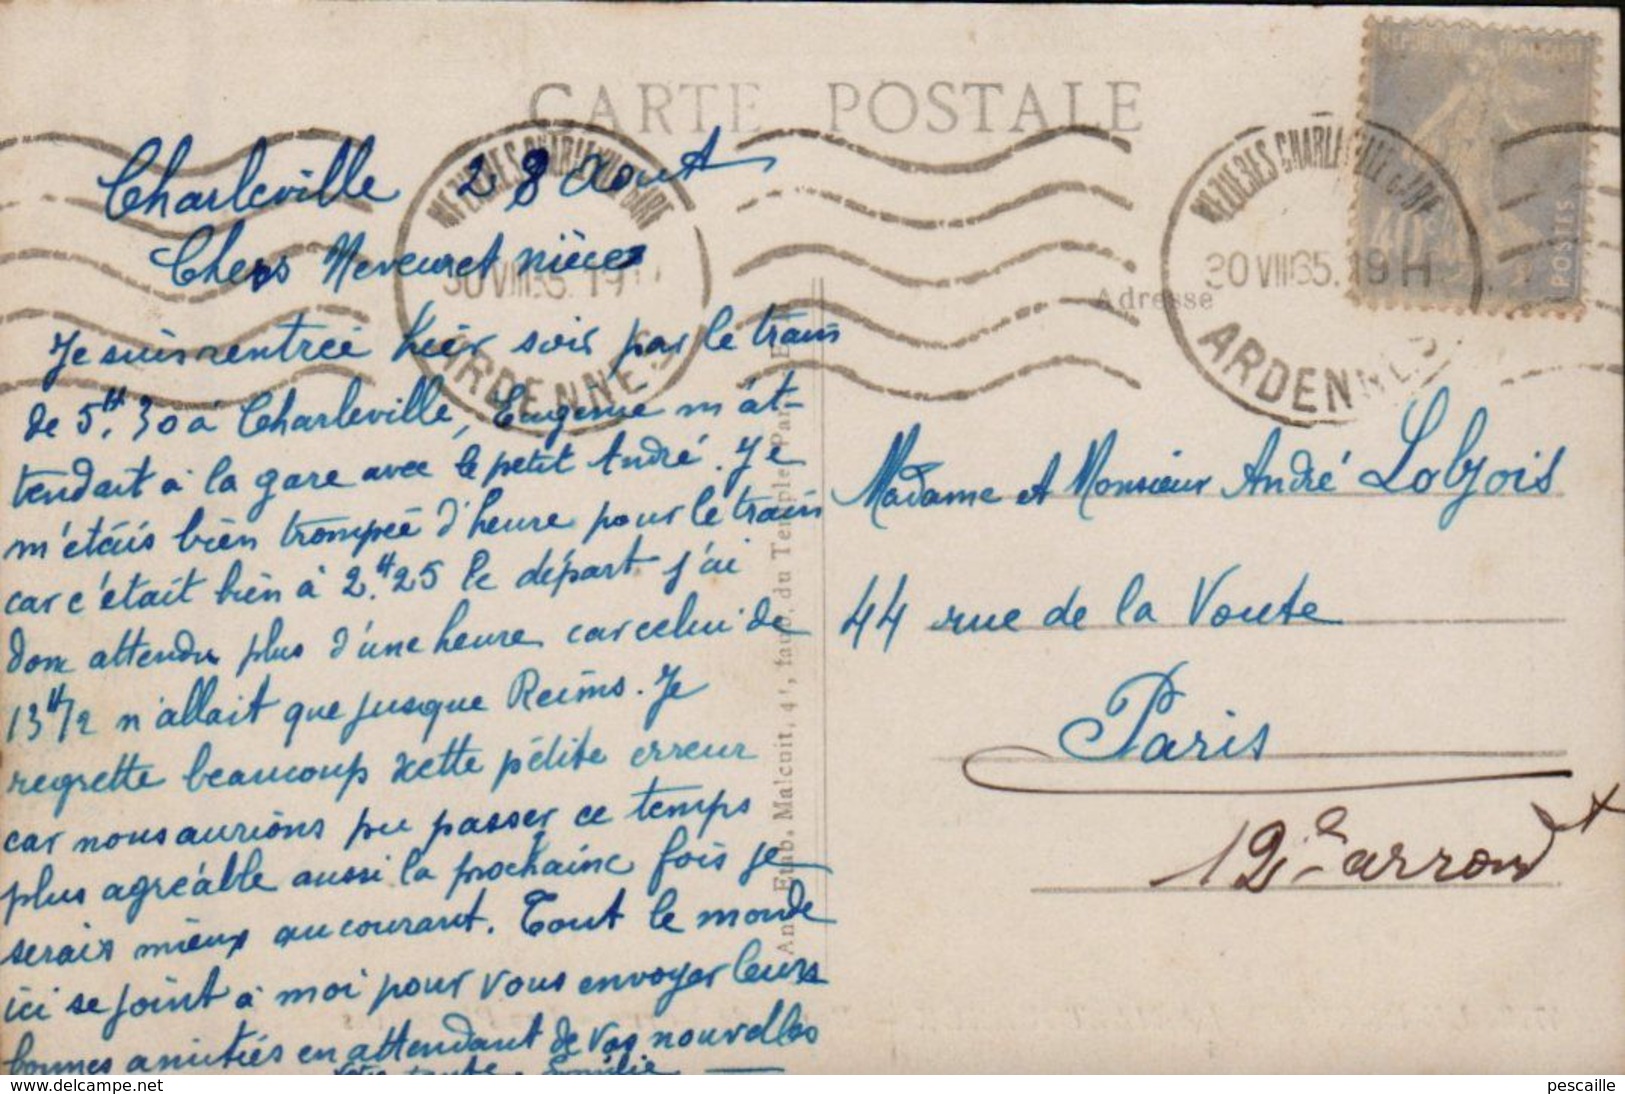 CARTE POSTALE
REPUBLIQUE FRANCAISE
40c
POSTES
MEZIERES CHARLEVILLE GARE
30 VIII 35. 19 H
ARDENNES
MEZIERES CHARLEVILLE GARE
30 VIII 35. 19 H
ARDENNES
Adresse
Charleville 28 Aout
Chers Neveu et nièce
Je suis rentrée hier soir par le train
de 5H,30 à Charleville, Eugenie m'at-
tendait à la gare avec le petit André. Je
m'étais bien trompée d'heure pour le train
car c'était bien à 2H.25 le départ j'ai
donc attendu plus d'une heure car celui de
13H/2 n'allait que jusque Reims. Je
regrette beaucoup cette petite erreur
car nous aurions pu passer ce temps
plus agréable aussi la prochaine fois je
serais mieux au courant. Tout le monde
ici se joint à moi pour vous envoyer leurs
bonnes amitiés en attendant de vos nouvelles
Votre tante Emilie
Anc. Etab. Malcuit, 41, faub. du Temple, Paris
Madame et Monsieur André Lobjois
44 rue de la Voute
Paris
12e arrondt
delcampe.net
pescaille